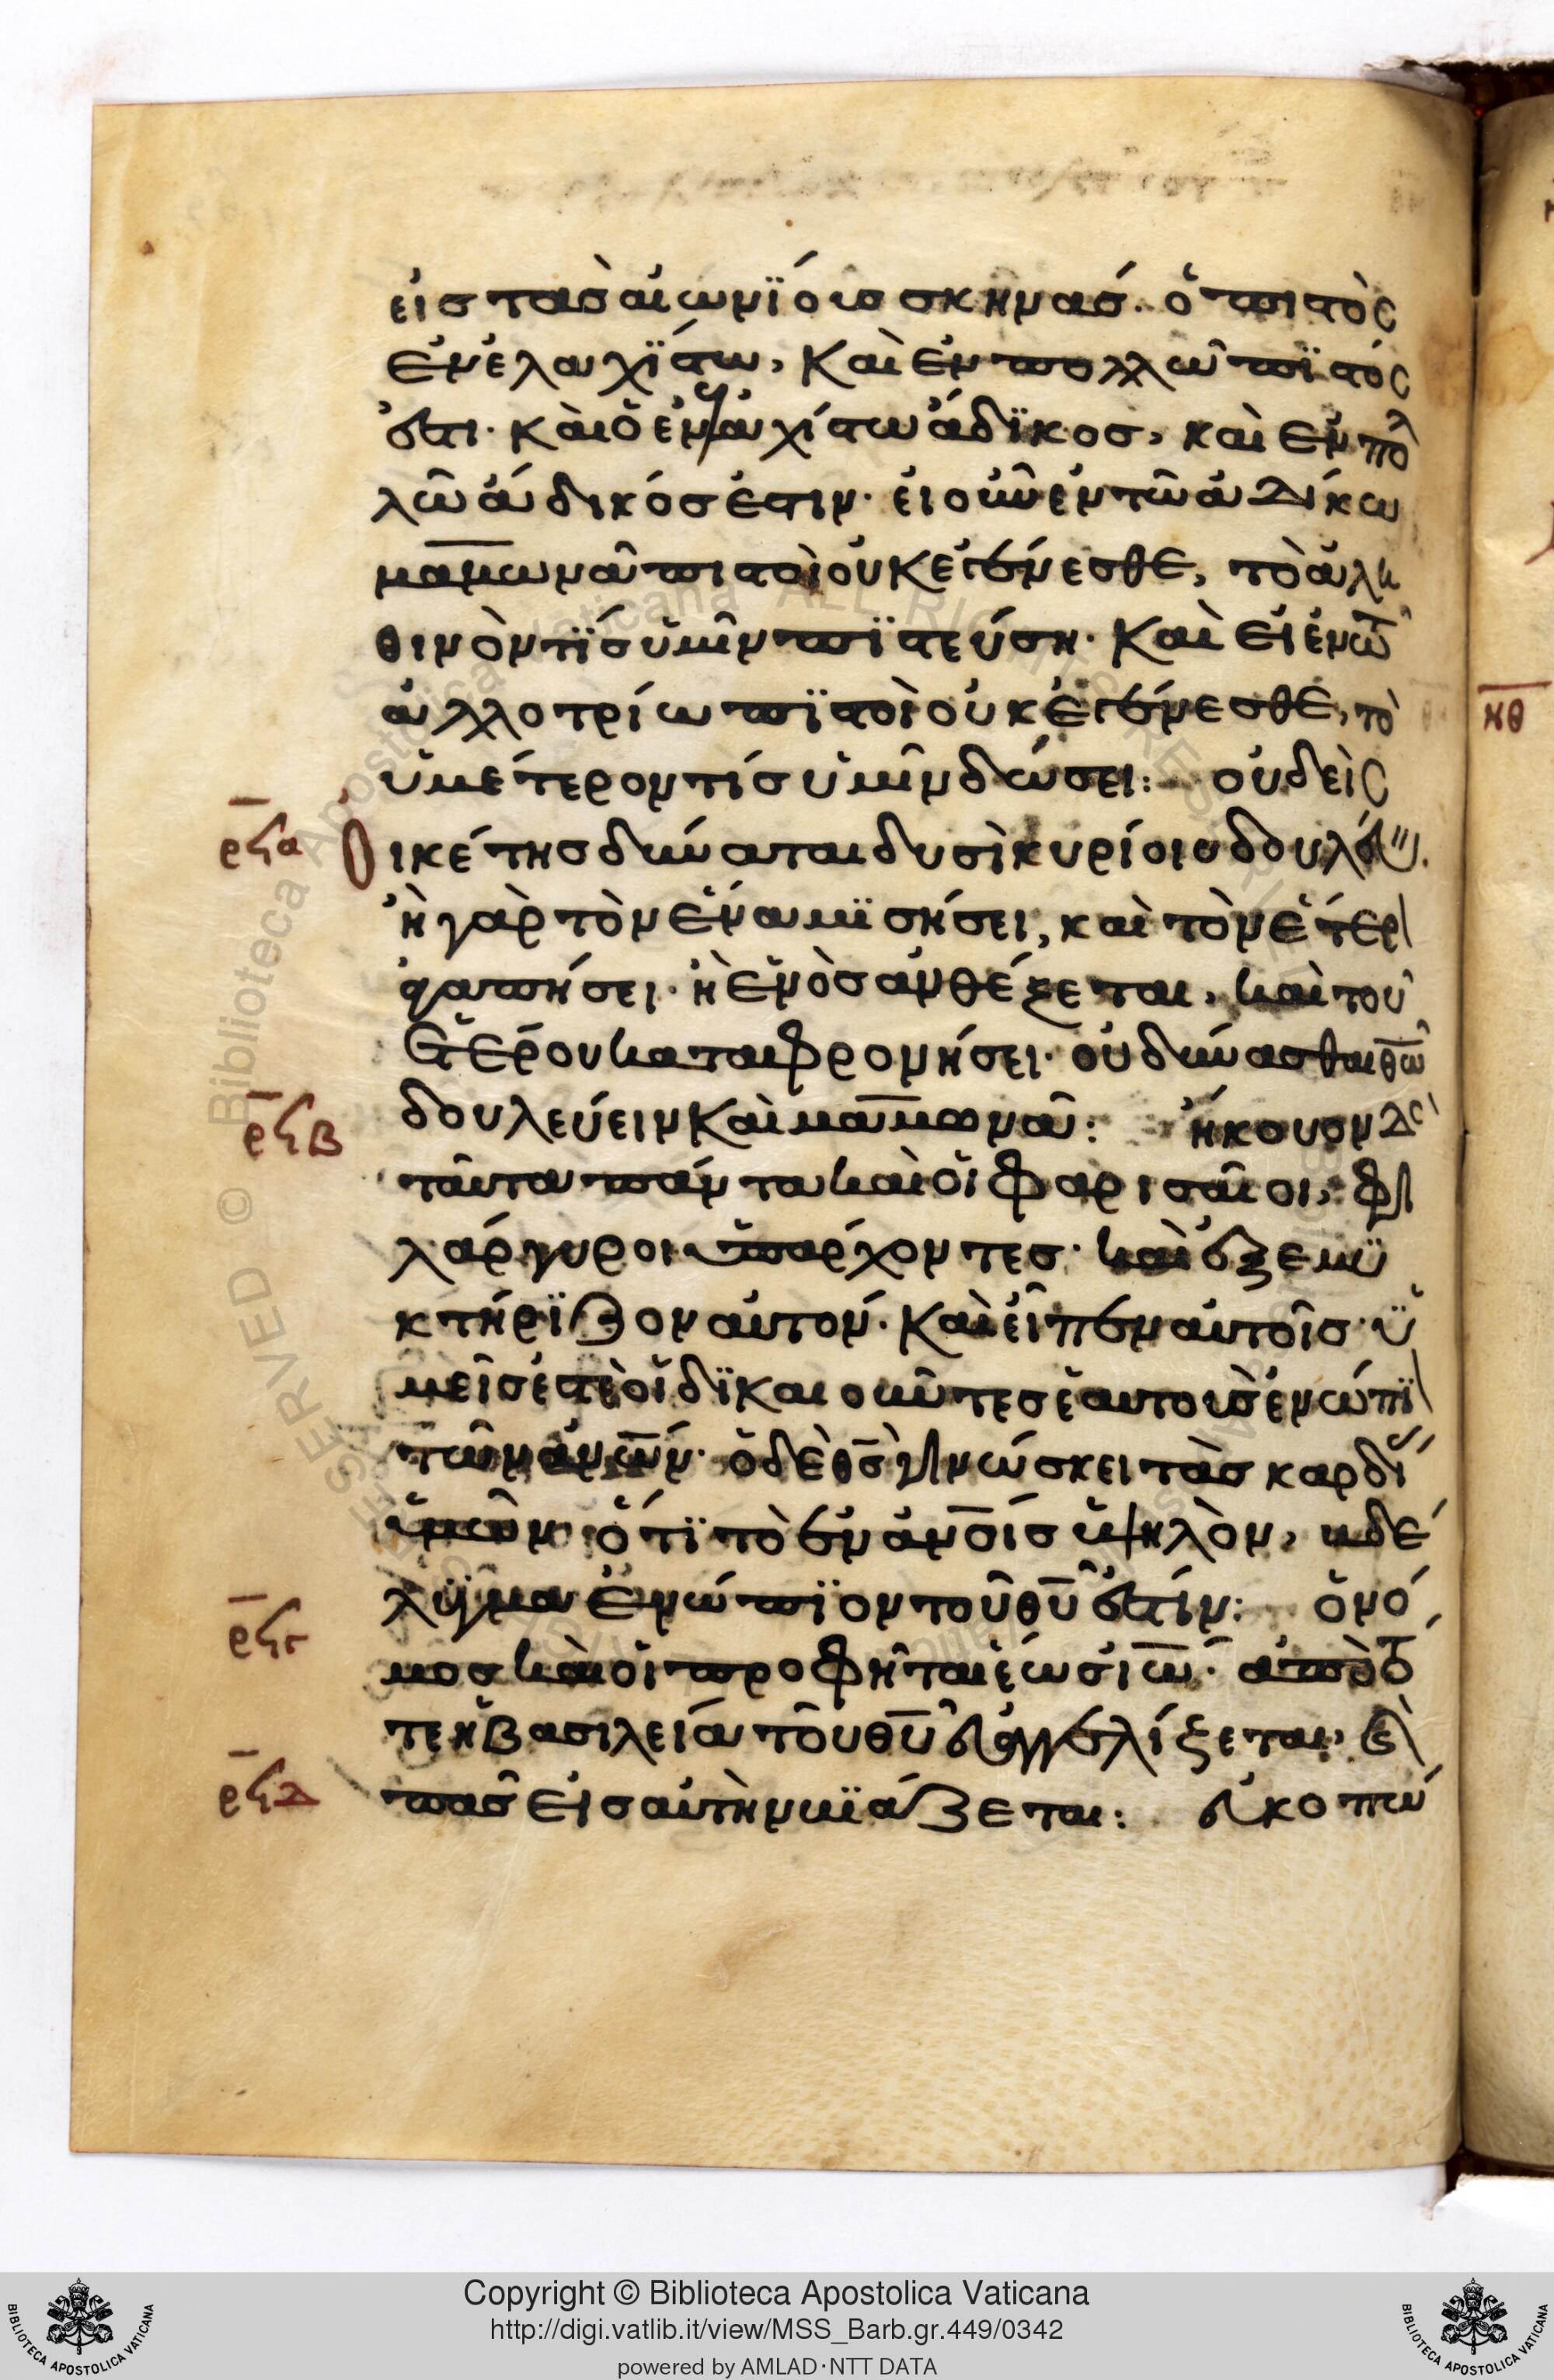 εἰς τὰς αἰωνΐους σκηνάς. ὁ πιστὸς
ἐν ἐλαχΐστω, καὶ ἐν πολλῶ πϊστός
ἐστι. καὶ ὁ ἐν ἐλαχίστω ἄδϊκος, καὶ ἐν πολ
λῶ ἄδικός ἐστιν. εἰ οὖν ἐν τῶ ἀδίκω
μαμωνᾶ πιστοὶ οὐκ ἐγένεσθε, τὸ ἀλη
θινὸν τΐς ὑμῖν πϊστεύση. καὶ εἰ ἐν τῶ
ἀλλοτρίω πϊστοὶ οὐκ ἐγένεσθε, τὸ
ὑμέτερον τίς ὑμῖν δώσει: οὐδεὶς
ρϟα οἰκέτης δύναται δυσὶ κυρίοις δουλεύειν.
ἢ γὰρ τὸν ἕνα μϊσήσει, καὶ τὸν ἕτερ
ἀγαπήσει. ἢ ἑνὸς ἀνθέξεται, καὶ τοῦ
ἑτέρου καταφρονήσει. οὐ δύνασθαι θ̅ω̅
ρϟβ δουλεύειν καὶ μαμωνᾶ: ἤκουον δὲ
ταῦτα πάντα καὶ οἱ φαρισαῖοι, φι
λάργυροι ὑπάρχοντες. καὶ ἐξεμϋ
κτήρϊζον αὐτόν. καὶ εἶπεν αὐτοῖς. ὑ
μεῖς ἐστὲ οἱ δϊκαιοῦντες ἑαυτοὺς ἐνώπϊ
τῶν ἀν̅ω̅ν. ὁ δὲ θ̅ς̅ γινώσκει τὰς καρδί
ὑμῶν ὅτϊ τὸ ἐν ἀν̅ο̅ις ὑψηλὸν, βδέ
λϋγμα ἐνώπϊον τοῦ θ̅υ̅ ἐστίν: ὁ νό
ρϟγ μος καὶ οἱ προφῆται ἕως ἰ̅ω̅. ἀπὸ τό
τε ἡ βασιλεία τοῦ θ̅υ̅ εὐαγγελίζεται, καὶ
ρϟδ πᾶς εἰς αὐτὴν βϊάζεται: εὐκοπώ
ηθ
Copyright © Biblioteca Apostolica Vaticana
http://digi.vatlib.it/view/MSS_Barb.gr.449/0342
powered by AMLAD·NTT DATA